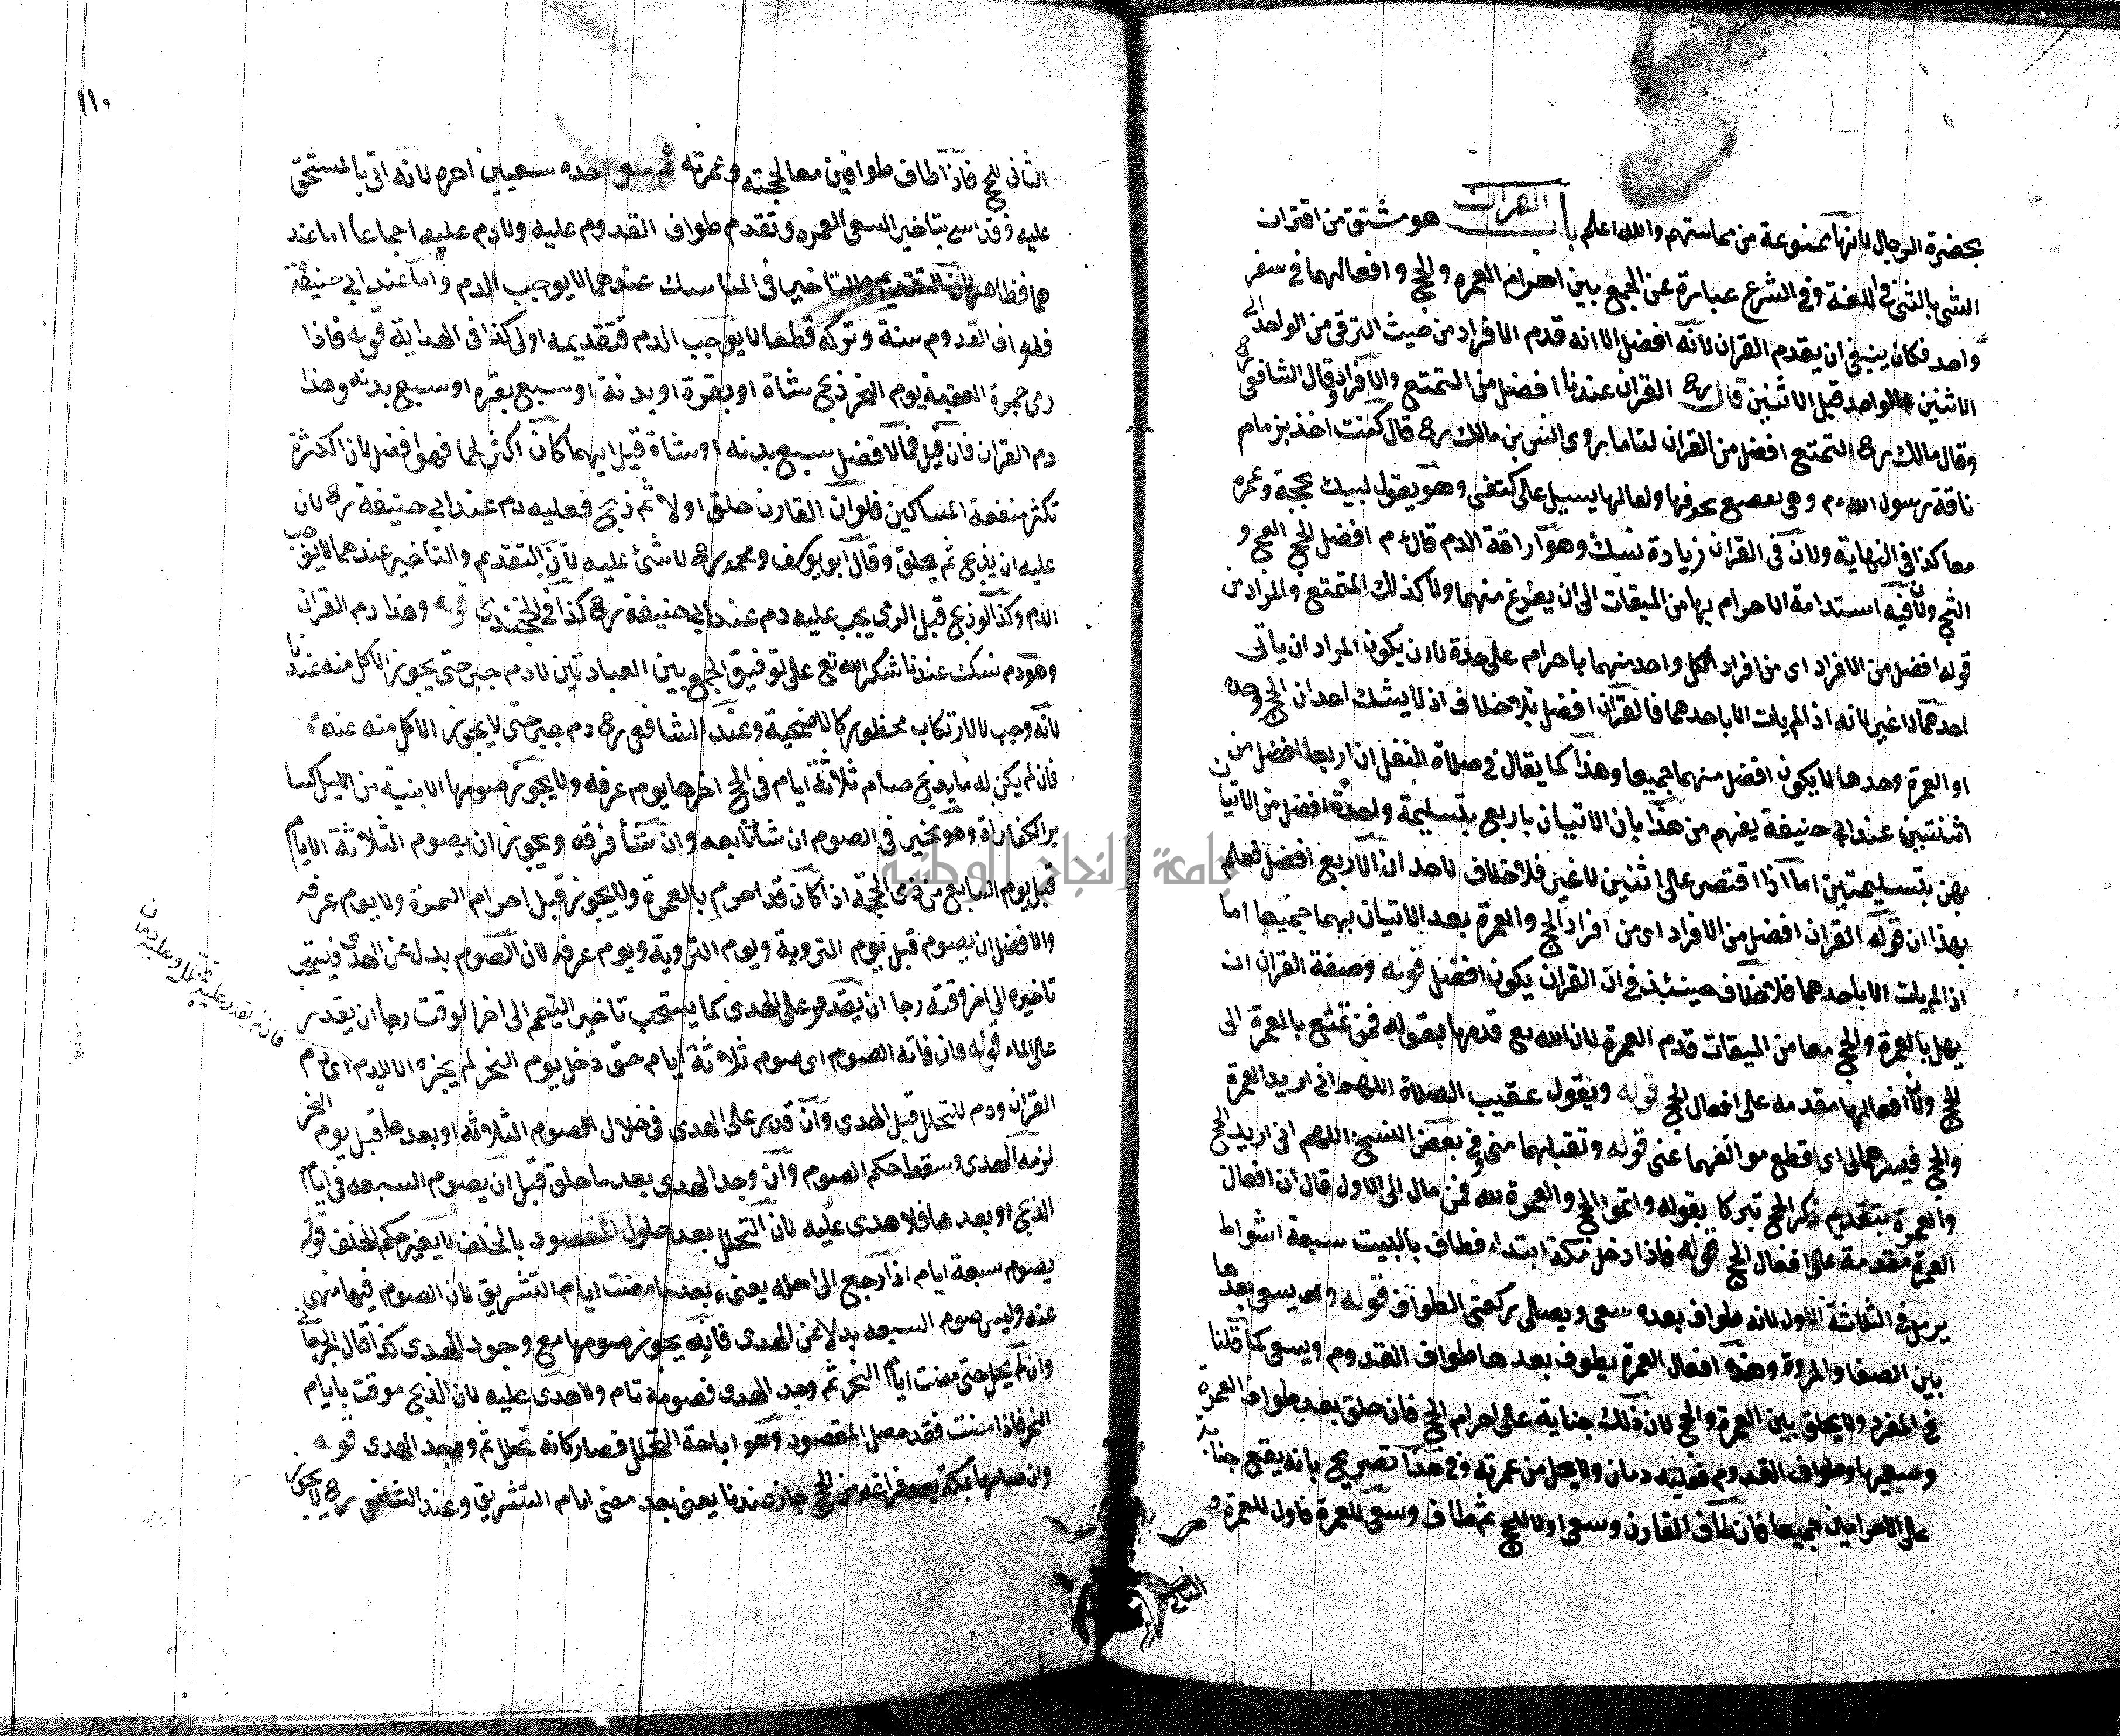 بحضرة الرجال لانها ممنوعة من مماستهم والله اعلم باب القران هو مشتق من اقتران
الشي بالشي في اللغة وفي الشرع عبارة عن الجمع بين احرام العمره والحج وافعالهما في سفر
واحد فكان ينبغي ان يقدم القران لانه افضل الا انه قدم الافراد من حيث الترقي من الواحد الى
الاثنين والواحد قبل الاثنين قال رح القران عندنا افضل من التمتع والافراد وقال الشافعي رح
وقال مالك رح التمتع افضل من القران لنا ما روى انس بن مالك رح قال كنت اخذ بزمام
ناقة رسول الله م وهي تقصع بجرفها ولعابها يسيل على كتفي وهو يقول لبيك بحجة وعمرة
معا كذا في النهاية ولان في القران زيادة نسك وهو اراقة الدم قال م افضل الحج العج و
الثج ولان فيه استدامة الاحرام بهما من الميقات الى ان يفرغ منهما ولا كذلك المتمتع والمراد من
قوله افضل من الافراد اى من افراد كل واحد منهما باحرام على حدة لا ان يكون المراد ان ياتي
احدهما لا غير لانه اذ الم يات الا باحدهما فالقران افضل بلا خلاف اذ لا يشك احد ان الحج وحده
او العمرة وحدها لا يكون افضل منهما جميعا وهذا كما يقال في صلاة النفل ان اربعا افضل من
اثنتين عند ابي حنيفة يفهم من هذا بان الاتيان باربع بتسليمة واحدة افضل من الاتيان
بهن بتسليمتين اما اذا اقتصر على اثنين لا غير فلا خلاف لاحد ان الاربع افضل فعلم
بهذا ان قوله القران افضل من الافراد اى من افراد الحج والعمرة بعد الاتيان بهما جميعا اما
اذ الم يات الا باحدهما فلا خلاف حينئذ في ان القران يكون افضل قوله وصفة القران ان
يهل بالعمرة والحج معا من الميقات قدم العمرة لان الله تع قدمها بقوله فمن تمتع بالعمرة الى
الحج ولان افعالها مقدمه على افعال الحج قوله ويقول عقيب الصلاة اللهم اني اريد العمرة
والحج فيسرهما لي اى اقطع موانعهما عني قوله وتقبلهما مني وفي بعض النسخ اللهم اني اريد الحج
والعمرة بتقديم ذكر الحج تبركا بقوله واتموا الحج والعمرة لله فمن مال الى الاول قال ان افعال
العمرة مقدمة على افعال الحج قوله فاذا دخل مكة ابتداء فطاف بالبيت سبعة اشواط
يرمل في الثلاثة الاول لانه طواف بعده سعي ويصلي ركعتي الطواف قوله ويسعى بعدها
بين الصفا والمروة وهذه افعال العمرة يطوف بعدها طواف القدوم ويسعى كما قلنا
في المفرد ولا يحلق بين العمرة والحج لان ذلك جناية على احرام الحج فان حلق بعد طواف العمرة
وسعيها وطواف القدوم فعليه دمان ولا يحل من عمرته وفي هذا تصريح بانه يقع جناية
على الاحرامين جميعا فان طاف القارن وسعى اولا للحج ثم طاف وسعى للعمرة فاول للعمرة و
الثاني
١١٠
الثاني للحج فاذا طاف طوافين معا لحجته وعمرته ثم سعى احده سعيين اجزه لانه اتى بالمستحق
عليه وقد اسى بتاخير السعي العمره وتقدم طواف القدوم عليه ولا دم عليه اجماعا اما عند
هما فظاهر لان التقديم والتاخير في المناسك عندهما لا يوجب الدم واما عند ابي حنيفة
فطواف القدوم سنة وتركه قطعا لا يوجب الدم فتقديمه اولى كذا في الهداية قوله فاذا
رمى جمرة العقبة يوم النحر ذبح شاة او بقرة او بدنة او سبع بقره او سبع بدنه وهذا
دم القران فان قيل فما الافضل سبع بدنه او شاة قيل ايهما كان اكثر لحما فهو افضل لان الكثرة
تكثر منفعة المساكين فلو ان القارن حلق اولا ثم ذبح فعليه دم عند ابي حنيفة رح لان
عليه ان يذبح ثم يحلق وقال ابو يوسف ومحمد رح لا شئ عليه لان التقديم والتاخير عندهما لا يوجب
الدم وكذا لو ذبح قبل الرمي يجب عليه دم عند ابي حنيفة رح كذا في الخجندي قوله وهذا دم القران
وهو دم نسك عندنا شكر الله تع على توفيق الجمع بين العبادتين لا دم جبر حتى يجوز الاكل منه عندنا
لانه وجب لا لارتكاب محظور كالاضحية وعند الشافعي رح دم جبر حتى لا يجوز الاكل منه عنده
فان لم يكن له ما يذبح صام ثلاثة ايام في الحج اخرها يوم عرفه ولا يجوز صومها الا بنية من الليل كسا
ير الكفاراة وهو مخير في الصوم ان شا تابعه وان شا فرقه ويجوز ان يصوم الثلاثة الايام
قبل يوم السابع من ذى الحجة اذا كان قد احرم بالعمرة ولا يجوز قبل احرام العمرة ولا يوم عرفه
والافضل ان يصوم قبل يوم التروية ويوم التروية ويوم عرفه لان الصوم بدل عن الهدى فيستحب
تاخيره الى اخر وقته رجا ان يقدر على الهدى كما يستحب تاخير التيمم الى اخر الوقت رجا ان يقدر
على الماء قوله وان فاته الصوم اى صوم ثلاثة ايام حتى دخل يوم النحر لم يجزه الا الدم اى دم
القران ودم للتحلل قبل الهدى وان قدر على الهدى في خلال الصوم الثلاثه او بعدها قبل يوم النحر
لزمه الهدى وسقط حكم الصوم وان وجد الهدى بعد ما حلق قبل ان يصوم السبعه في ايام
الذبح او بعدها فلا هدى عليه لان التحلل بعد حلول المقصود بالخلف لا يغير حكم الخلف قوله
يصوم سبعة ايام اذا رجع الى اهله يعني بعد ما مضت ايام التشريق لان الصوم فيها منهى
عنه وليس صوم السبعه بدلا عن الهدى فانه يجوز صومها مع وجود الهدى كذا قال الجرجاني
وان لم يحل حتى مضت ايام النحر ثم وجد الهدى فصومه تام ولا هدى عليه لان الذبح موقت بايام
النحر فاذا مضت فقد حصل المقصود وهو اباحة التحلل فصار كانه تحلل ثم وجد الهدى قوله
وان صامها بمكة بعد فراغه من الحج جاز عندنا يعني بعد مضي ايام التشريق وعند الشافعي رح لا يجوز
فان لم يقدر عليه تحلل وعليه دمان
جامعة النجاح الوطنية